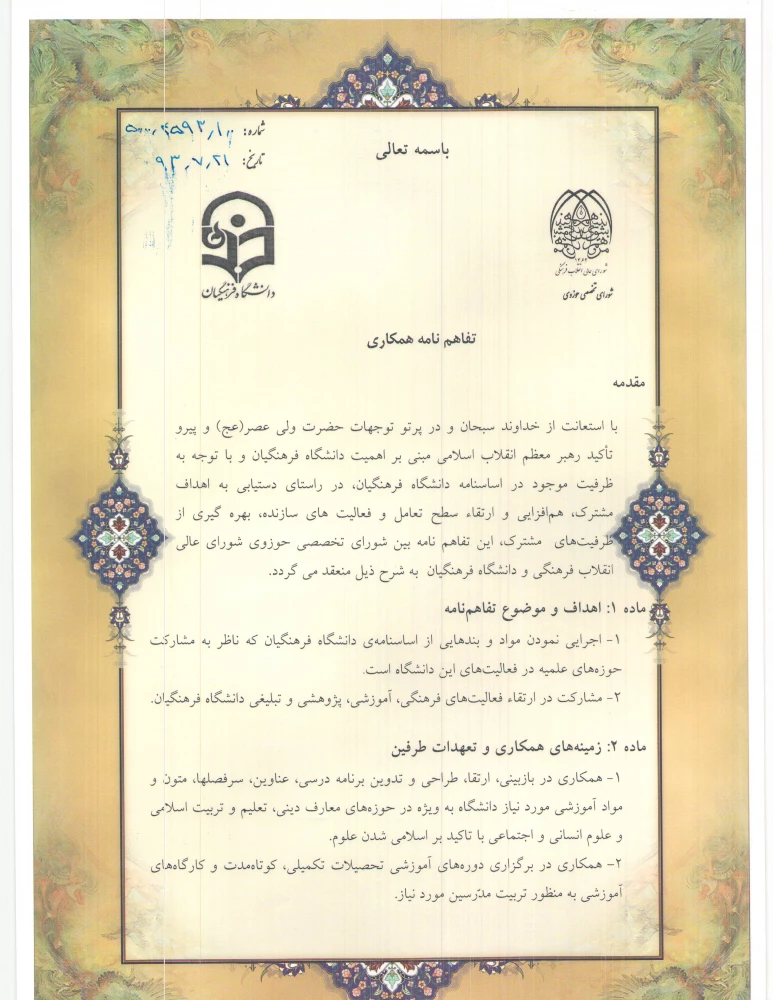 باسمه تعالی
شماره: ۵۰۰۰۰/۴۵۹۳/۱۰۰
تاریخ: ۹۳/۷/۲۱
شورای عالی انقلاب فرهنگی
شورای تخصصی حوزوی
دانشگاه فرهنگیان
تفاهم نامه همکاری
مقدمه
با استعانت از خداوند سبحان و در پرتو توجهات حضرت ولی عصر(عج) و پیرو
تأکید رهبر معظم انقلاب اسلامی مبنی بر اهمیت دانشگاه فرهنگیان و با توجه به
ظرفیت موجود در اساسنامه دانشگاه فرهنگیان، در راستای دستیابی به اهداف
مشترک، هم‌افزایی و ارتقاء سطح تعامل و فعالیت های سازنده، بهره گیری از
ظرفیت‌های مشترک، این تفاهم نامه بین شورای تخصصی حوزوی شورای عالی
انقلاب فرهنگی و دانشگاه فرهنگیان به شرح ذیل منعقد می گردد.
ماده ۱: اهداف و موضوع تفاهم‌نامه
۱- اجرایی نمودن مواد و بندهایی از اساسنامه‌ی دانشگاه فرهنگیان که ناظر به مشارکت
حوزه‌های علمیه در فعالیت‌های این دانشگاه است.
۲- مشارکت در ارتقاء فعالیت‌های فرهنگی، آموزشی، پژوهشی و تبلیغی دانشگاه فرهنگیان.
ماده ۲: زمینه‌های همکاری و تعهدات طرفین
۱- همکاری در بازبینی، ارتقا، طراحی و تدوین برنامه درسی، عناوین، سرفصلها، متون و
مواد آموزشی مورد نیاز دانشگاه به ویژه در حوزه‌های معارف دینی، تعلیم و تربیت اسلامی
و علوم انسانی و اجتماعی با تاکید بر اسلامی شدن علوم.
۲- همکاری در برگزاری دوره‌های آموزشی تحصیلات تکمیلی، کوتاه‌مدت و کارگاه‌های
آموزشی به منظور تربیت مدّرسین مورد نیاز.